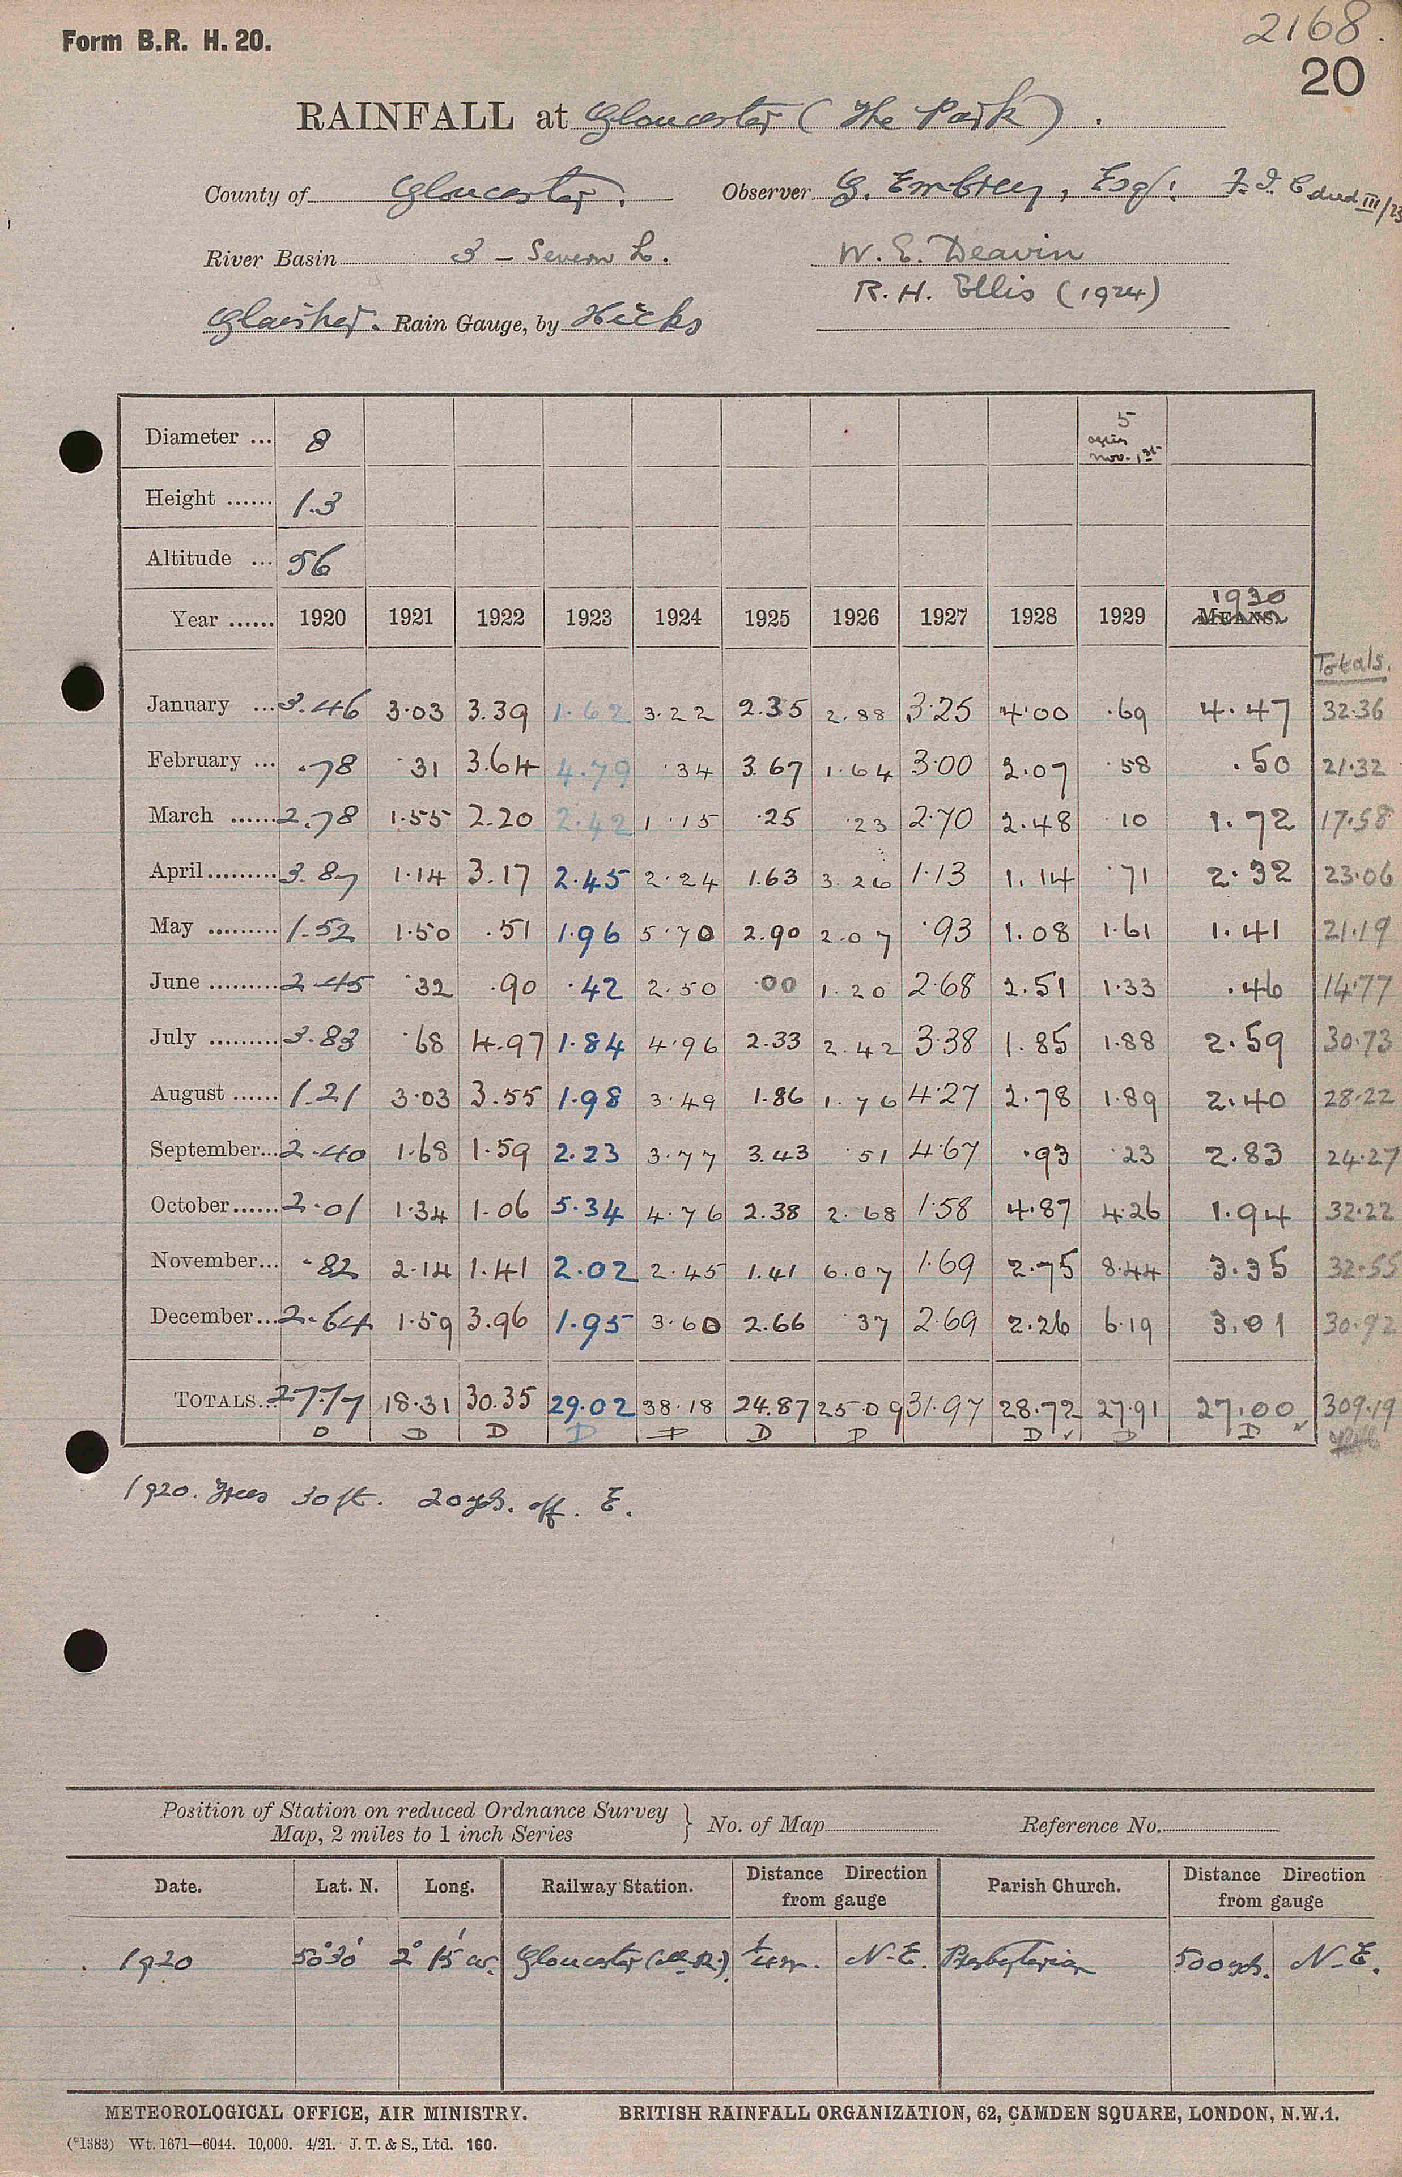 Form B.R. H. 20.
2168.
20
RAINFALL at Gloucester (The Park).
County of Gloucester. Observer G. Embrey, Esq. F.I.C died III/23
River Basin 3 - Severn L. W. E. Deavin
R. H. Ellis (1924)
Glaisher. Rain Gauge, by Hicks
Diameter ... 8 5 after Nov. 1st
Height ...... 1.3
Altitude ... 56
Year ...... 1920 1921 1922 1923 1924 1925 1926 1927 1928 1929 1930 MEANS.
Totals.
January ... 3.46 3.03 3.39 1.62 3.22 2.35 2.88 3.25 4.00 .69 4.47 32.36
February ... .78 .31 3.64 4.79 .34 3.67 1.64 3.00 2.07 .58 .50 21.32
March ...... 2.78 1.55 2.20 2.42 1.15 .25 .23 2.70 2.48 .10 1.72 17.58
April ......... 3.87 1.14 3.17 2.45 2.24 1.63 3.26 1.13 1.14 .71 2.32 23.06
May ......... 1.52 1.50 .51 1.96 5.70 2.90 2.07 .93 1.08 1.61 1.41 21.19
June ......... 2.45 .32 .90 .42 2.50 .00 1.20 2.68 2.51 1.33 .46 14.77
July ......... 3.83 .68 4.97 1.84 4.96 2.33 2.42 3.38 1.85 1.88 2.59 30.73
August ...... 1.21 3.03 3.55 1.98 3.49 1.86 1.76 4.27 2.78 1.89 2.40 28.22
September... 2.40 1.68 1.59 2.23 3.77 3.43 .51 4.67 .93 .23 2.83 24.27
October...... 2.01 1.34 1.06 5.34 4.76 2.38 2.68 1.58 4.87 4.26 1.94 32.22
November... .82 2.14 1.41 2.02 2.45 1.41 6.07 1.69 2.75 8.44 3.35 32.55
December... 2.64 1.59 3.96 1.95 3.60 2.66 .37 2.69 2.26 6.19 3.01 30.92
TOTALS... 27.77 18.31 30.35 29.02 38.18 24.87 25.09 31.97 28.72 27.91 27.00 309.19
D D D D D D D D D D
1920. Trees 30 ft. 20 yds. off. E.
Position of Station on reduced Ordnance Survey
Map, 2 miles to 1 inch Series } No. of Map Reference No.
Date. Lat. N. Long. Railway Station. Distance Direction from gauge Parish Church. Distance Direction from gauge
1920 50°30' 2° 15' W. Gloucester (M.R.) ¼ m. N.E. Presbyterian 500 yds. N.E.
METEOROLOGICAL OFFICE, AIR MINISTRY. BRITISH RAINFALL ORGANIZATION, 62, CAMDEN SQUARE, LONDON, N.W.1.
(*1383) Wt. 1671—6044. 10,000. 4/21. J. T. & S., Ltd. 160.